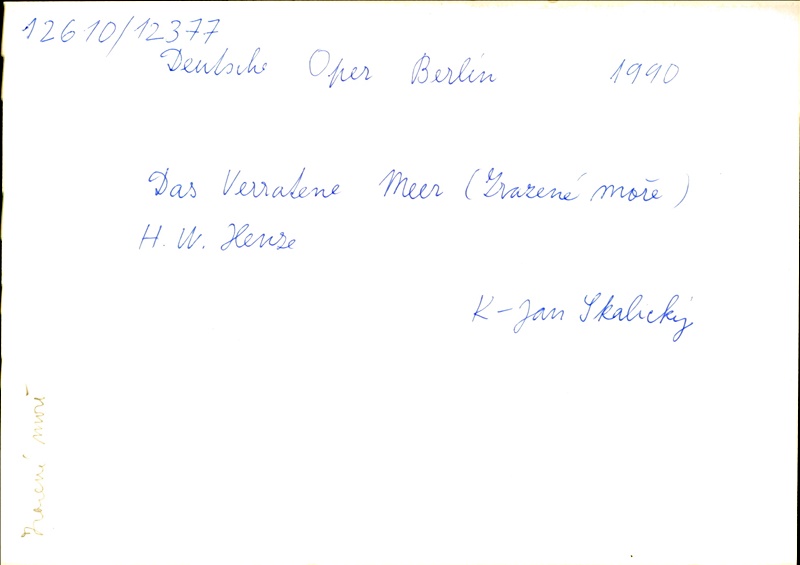 12610/12377
Deutsche Oper Berlin 1990
Das Verratene Meer (Zrazené moře)
H. W. Henze
K - Jan Skalický